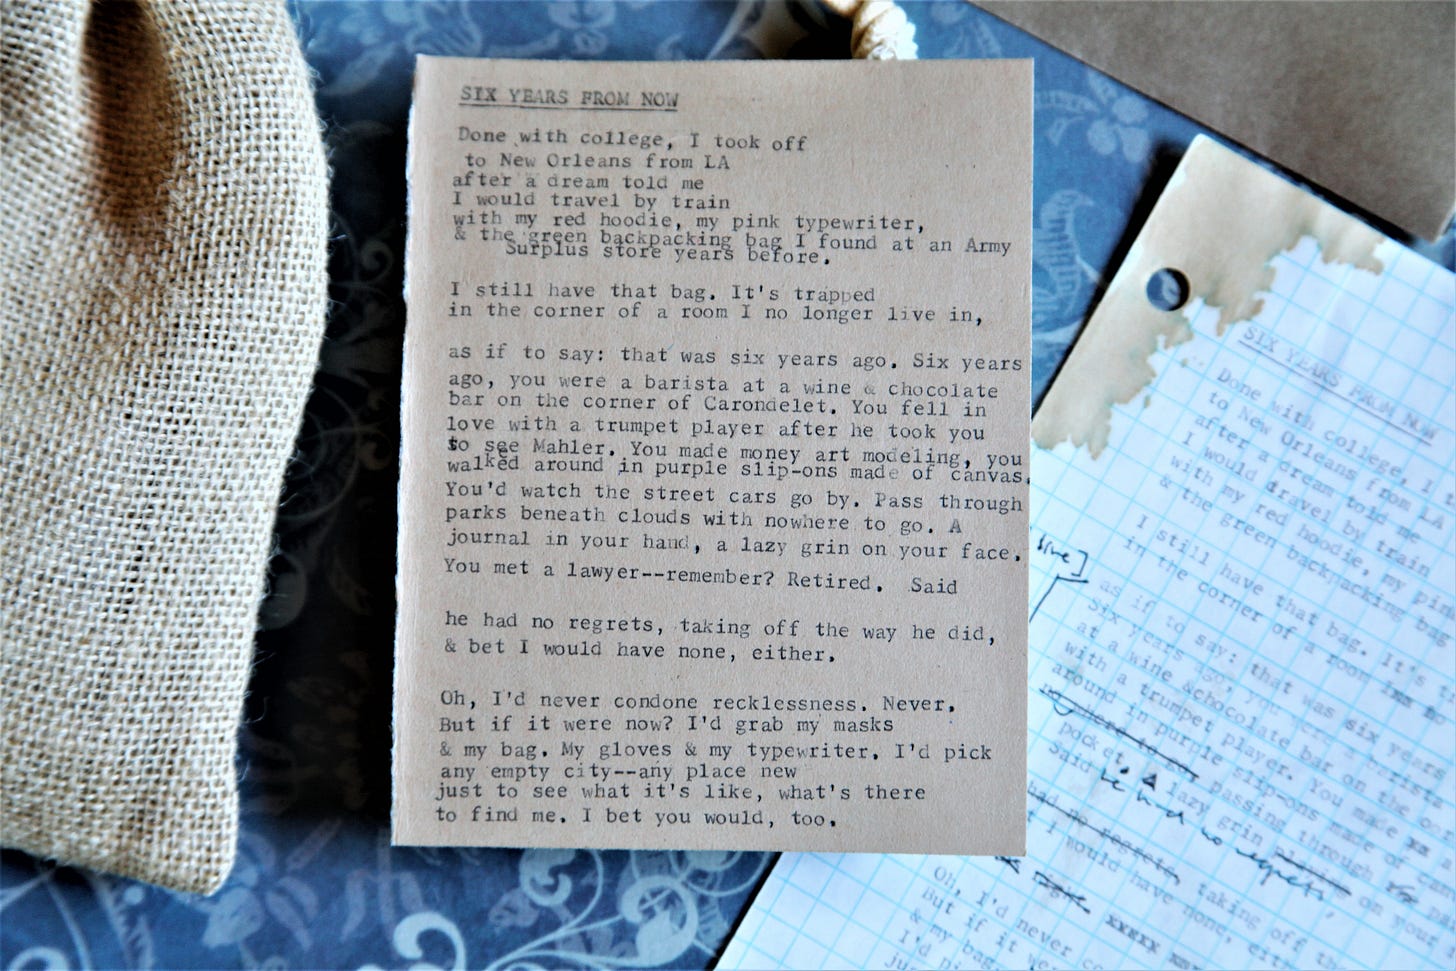 SIX YEARS FROM NOW
Done with college, I took off
to New Orleans from LA
after a dream told me
I would travel by train
with my red hoodie, my pink typewriter,
& the green backpacking bag I found at an Army
Surplus store years before.
I still have that bag. It's trapped
in the corner of a room I no longer live in,
as if to say: that was six years ago. Six years
ago, you were a barista at a wine & chocolate
bar on the corner of Carondelet. You fell in
love with a trumpet player after he took you
to see Mahler. You made money art modeling, you
walked around in purple slip-ons made of canvas.
You'd watch the street cars go by. Pass through
parks beneath clouds with nowhere to go. A
journal in your hand, a lazy grin on your face.
You met a lawyer--remember? Retired. Said
he had no regrets, taking off the way he did,
& bet I would have none, either.
Oh, I'd never condone recklessness. Never.
But if it were now? I'd grab my masks
& my bag. My gloves & my typewriter. I'd pick
any empty city--any place new
just to see what it's like, what's there
to find me. I bet you would, too.
SIX YEARS FROM NOW
Done with college, I
to New Orleans from LA
after a dream told me
I would travel by train
with my red hoodie, my
& the green backpacking bag
I still have that bag. It's
in the corner of a room
as if to say: that was six years
Six years ago, you were a barista
at a wine &chocolate bar on the
with a trumpet player. You made
around in purple slip-ons made of
passing through
pocket. A lazy grin on your
Said he had no regrets,
had no regrets, taking off the
I would have none,
Oh, I'd never
But if it were
& my bag.
I'd